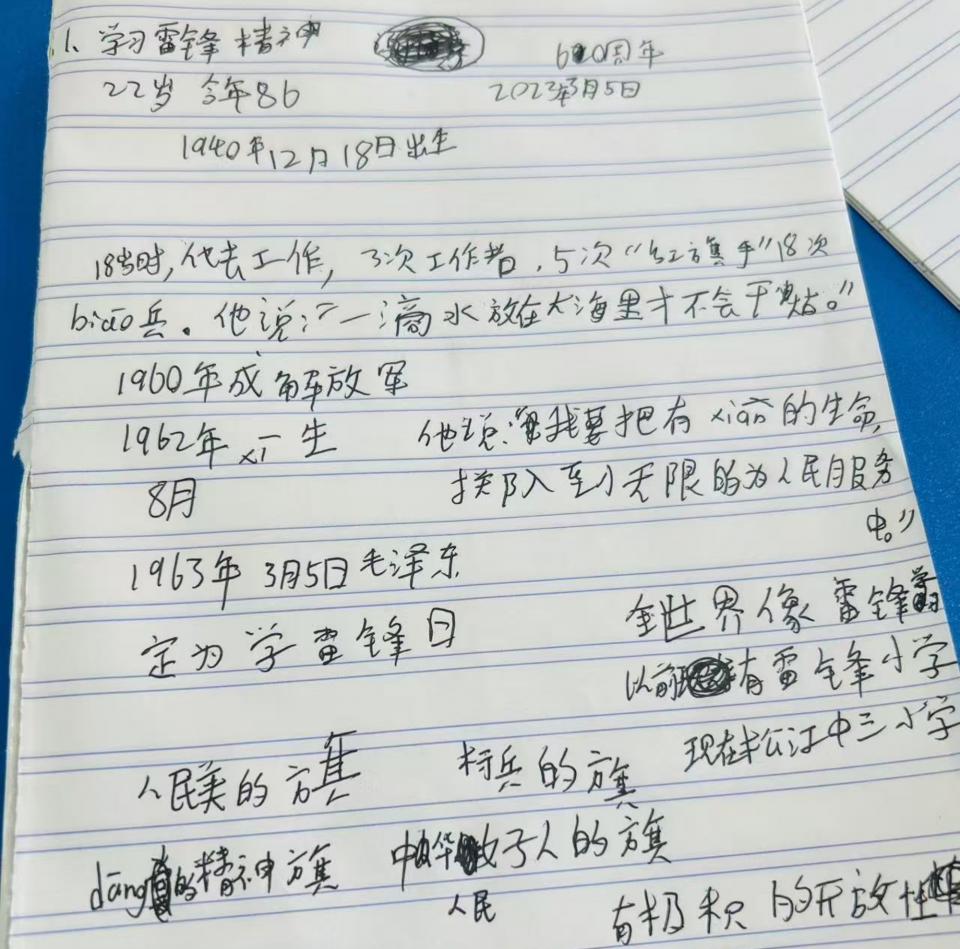 1、学习雷锋精神 600周年
22岁 今年86 2023年3月5日
1940年12月18日出生
18岁时,他去工作,3次工作者,5次“红旗手”18次
biāo兵。他说:“一滴水放在大海里才不会干枯。”
1960年成解放军
1962年xī生 他说:“我要把有xiàn的生命,
8月 投入到无限的为人民服务
中。”
1963年3月5日毛泽东
定为学雷锋日 全世界像雷锋学习
以前有雷锋小学
现在松江中三小学
人民美的旗 标兵的旗
dāng的精神旗 中华 子人的旗
人民 有积极的开放性